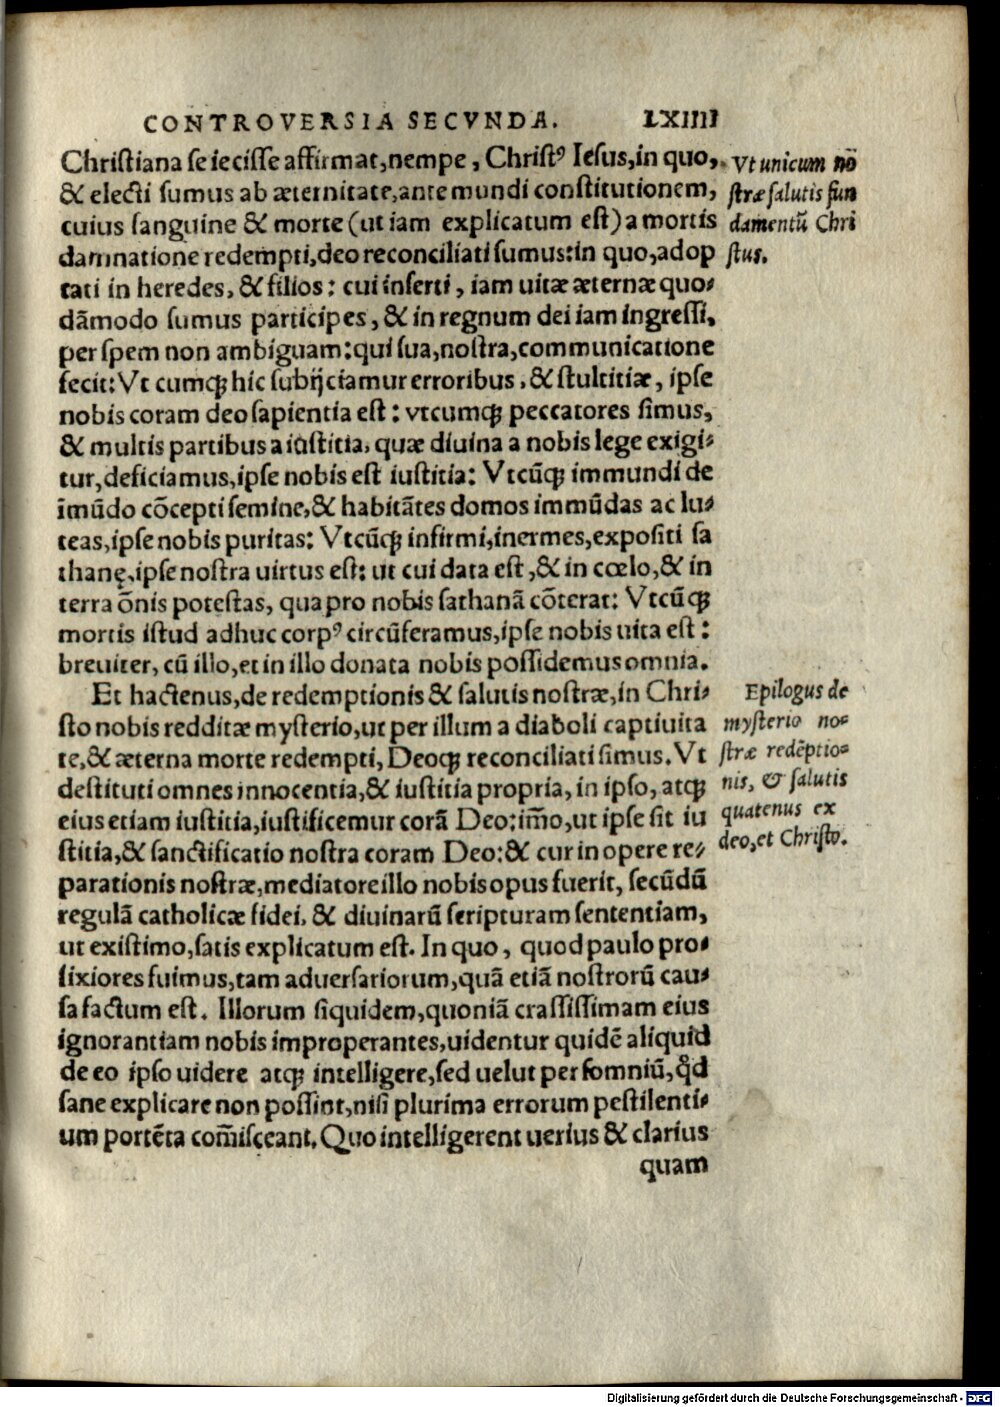 CONTROVERSIA SECVNDA. LXIIII
Christiana se iecisse affirmat, nempe, Christꝰ Iesus, in quo,
& electi sumus ab æternitate, ante mundi constitutionem,
cuius sanguine & morte (ut iam explicatum est) a mortis
damnatione redempti, deo reconciliati sumus: in quo, adop
tati in heredes, & filios: cui inserti, iam uitæ æternæ quo⸗
dāmodo sumus participes, & in regnum dei iam ingressi,
per spem non ambiguam: qui sua, nostra, communicatione
fecit: Vt cumq̃ hic subijciamur erroribus, & stultitiæ, ipse
nobis coram deo sapientia est: vtcumq̃ peccatores simus,
& multis partibus a iustitia, quæ diuina a nobis lege exigi⸗
tur, deficiamus, ipse nobis est iustitia: Vtcūq̃ immundi de
īmūdo cōcepti semine, & habitātes domos immūdas ac lu⸗
teas, ipse nobis puritas: Vtcūq̃ infirmi, inermes, expositi sa
thanę, ipse nostra uirtus est: ut cui data est, & in cœlo, & in
terra ōnis potestas, qua pro nobis sathanā cōterat: Vtcūq̃
mortis istud adhuc corpꝰ circūferamus, ipse nobis uita est:
breuiter, cū illo, et in illo donata nobis possidemus omnia.
Et hactenus, de redemptionis & salutis nostræ, in Chri⸗
sto nobis redditæ mysterio, ut per illum a diaboli captiuita
te, & æterna morte redempti, Deoq̃ reconciliati simus. Vt
destituti omnes innocentia, & iustitia propria, in ipso, atq̃
eius etiam iustitia, iustificemur corā Deo: im̄o, ut ipse sit iu
stitia, & sanctificatio nostra coram Deo: & cur in opere re⸗
parationis nostræ, mediatore illo nobis opus fuerit, secūdū
regulā catholicæ fidei, & diuinarū scripturam sententiam,
ut existimo, satis explicatum est. In quo, quod paulo pro⸗
lixiores fuimus, tam aduersariorum, quā etiā nostrorū cau⸗
sa factum est. Illorum siquidem, quoniā crassissimam eius
ignorantiam nobis improperantes, uidentur quidē aliquid
de eo ipso uidere atq̃ intelligere, sed uelut per somniū, qd̄
sane explicare non possint, nisi plurima errorum pestilenti⸗
um portēta com̄isceant. Quo intelligerent uerius & clarius
quam
Vt unicum nō
stræ salutis fun
damentū Chri
stus.
Epilogus de
mysterio no⸗
stræ redēptio⸗
nis, & salutis
quatenus ex
deo, et Christo.
Digitalisierung gefördert durch die Deutsche Forschungsgemeinschaft - DFG